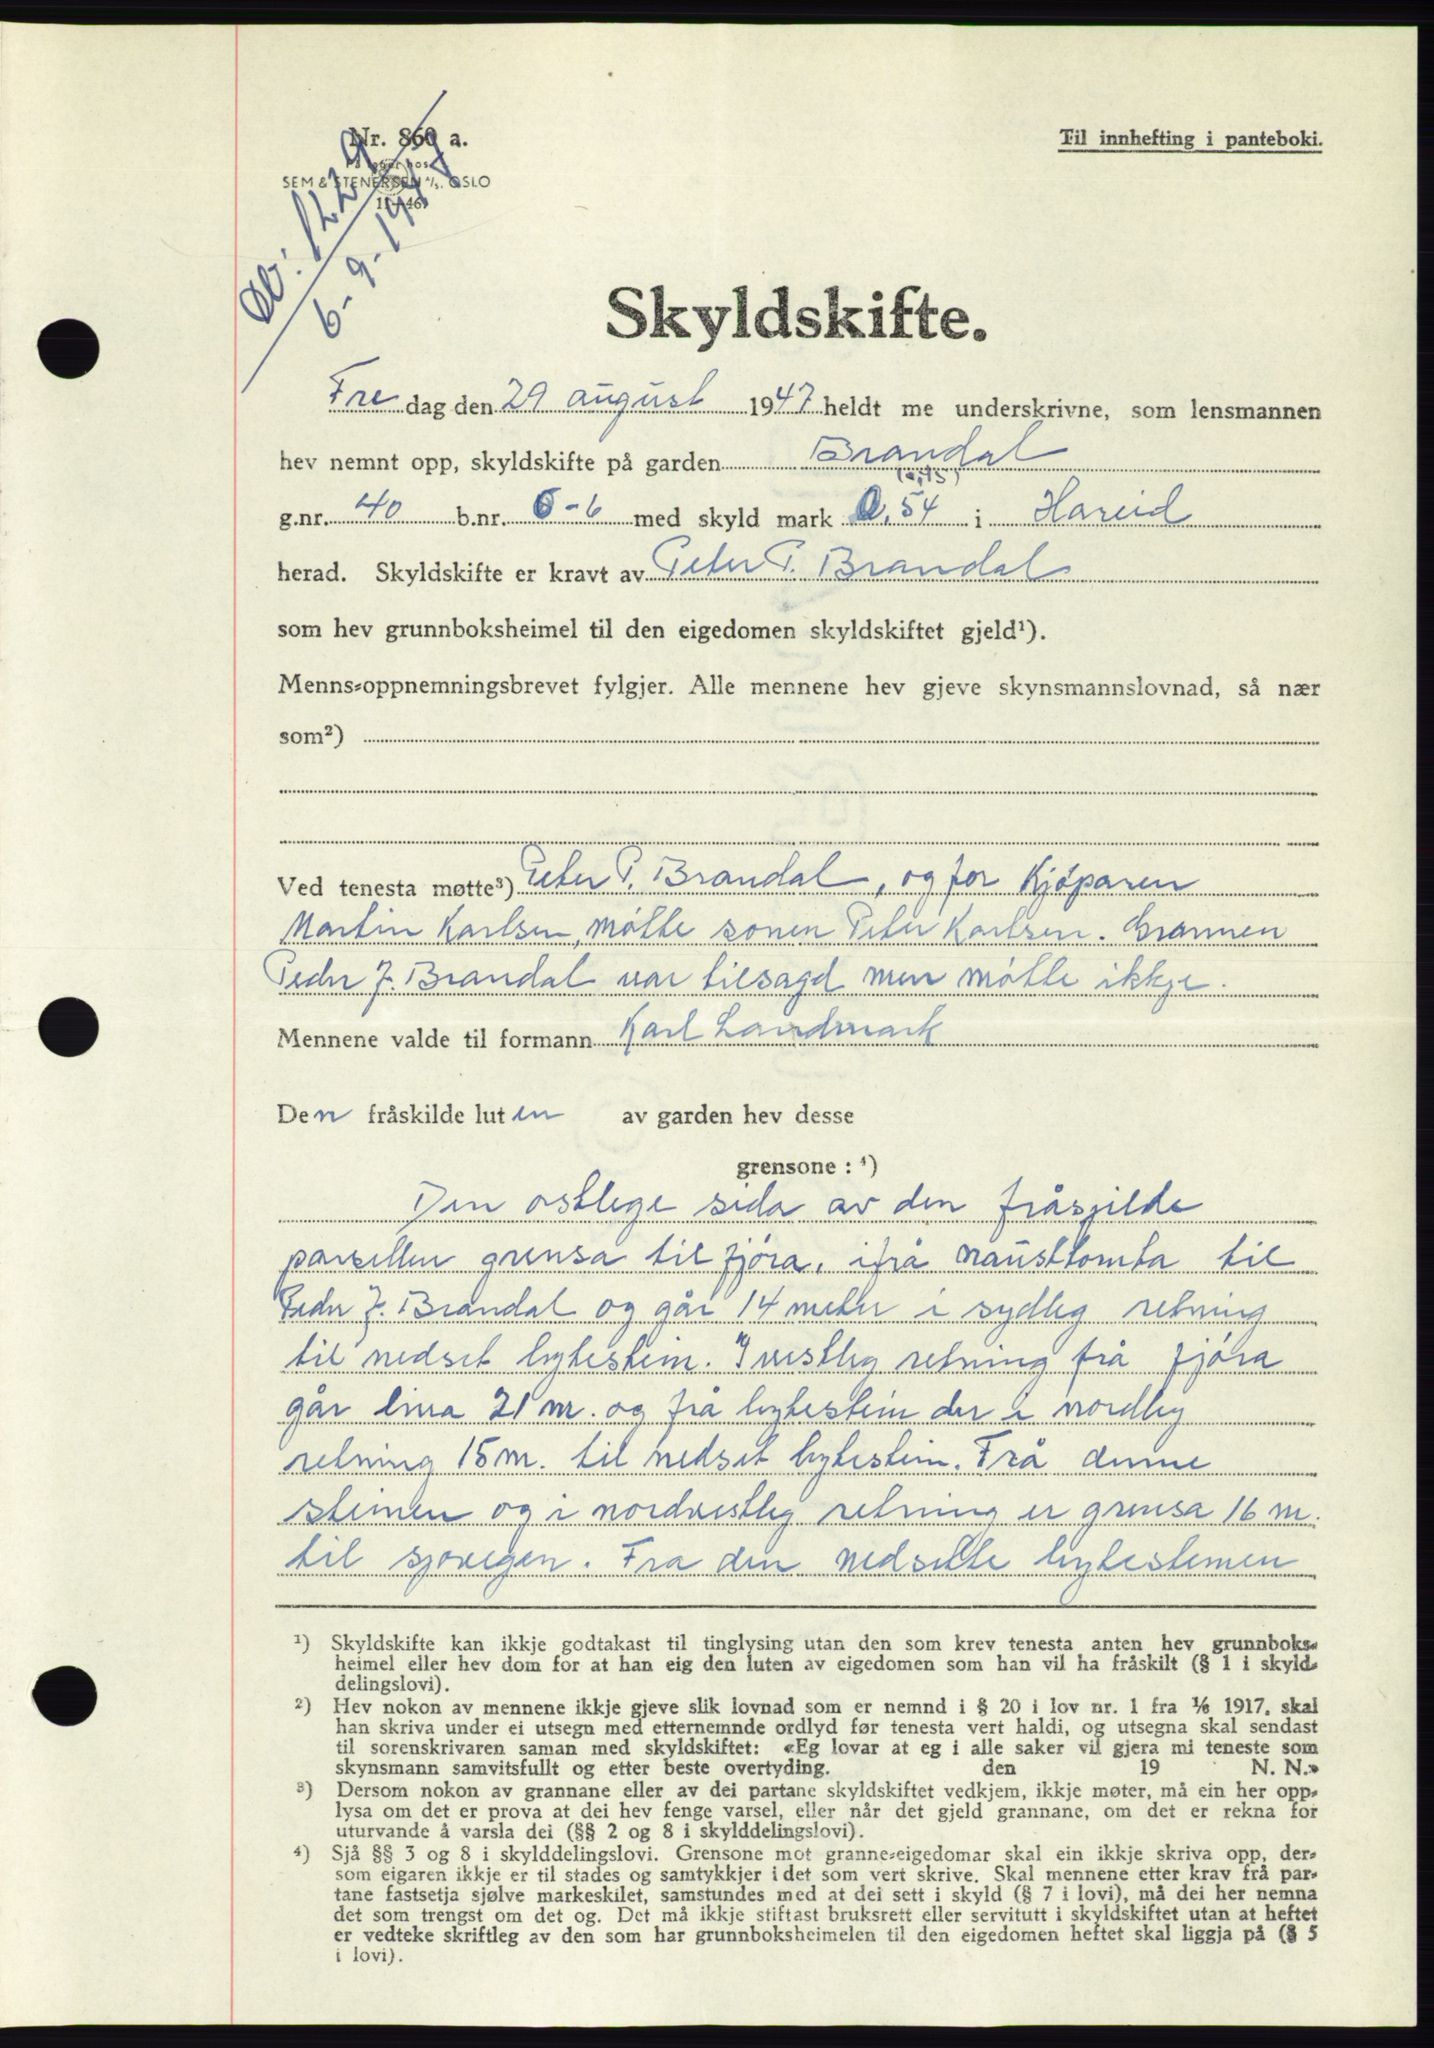 Nr. 860 a.
På lager hos
SEM & STENERSEN A/S. OSLO
11-46
Til innhefting i panteboki.
Db. 1229
6-9-1947
Skyldskifte.
Fre dag den 29 august 1947 heldt me underskrivne, som lensmannen
hev nemnt opp, skyldskifte på garden Brandal
(0,15)
g.nr. 40 b.nr. 6-6 med skyld mark 0,54 i Hareid
herad. Skyldskifte er kravt av Peter P. Brandal
som hev grunnboksheimel til den eigedomen skyldskiftet gjeld¹).
Menns-oppnemningsbrevet fylgjer. Alle mennene hev gjeve skynsmannslovnad, så nær
som²)
Ved tenesta møtte³) Peter P. Brandal, og for Kjøparen
Martin Karlsen, møtte sonen Peter Karlsen. Grannen
Peder J. Brandal var tilsagd men møtte ikkje.
Mennene valde til formann Karl Landmark
Den fråskilde luten av garden hev desse
grensone : ⁴)
Den ostlege sida av den fråsjilde
parsellen grensa til fjøra, ifrå nausttomta til
Peder J. Brandal og går 14 meter i sydleg retning
til nedset bytestein. I vestleg retning frå fjøra
går lina 21 m. og frå bytestein der i nordleg
retning 15 m. til nedset bytestein. Frå denne
steinen og i nordvestleg retning er grensa 16 m.
til sjovegen. Fra den nedsette bytesteinen
¹) Skyldskifte kan ikkje godtakast til tinglysing utan den som krev tenesta anten hev grunnboks-
heimel eller hev dom for at han eig den luten av eigedomen som han vil ha fråskilt (§ 1 i skyld-
delingslovi).
²) Hev nokon av mennene ikkje gjeve slik lovnad som er nemnd i § 20 i lov nr. 1 fra 1/6 1917, skal
han skriva under ei utsegn med etternemnde ordlyd før tenesta vert haldi, og utsegna skal sendast
til sorenskrivaren saman med skyldskiftet: «Eg lovar at eg i alle saker vil gjera mi teneste som
skynsmann samvitsfullt og etter beste overtyding. den 19 N. N.»
³) Dersom nokon av grannane eller av dei partane skyldskiftet vedkjem, ikkje møter, må ein her opp-
lysa om det er prova at dei hev fenge varsel, eller når det gjeld grannane, om det er rekna for
uturvande å varsla dei (§§ 2 og 8 i skylddelingslovi).
⁴) Sjå §§ 3 og 8 i skylddelingslovi. Grensone mot granne-eigedomar skal ein ikkje skriva opp, der-
som eigaren ikkje er til stades og samtykkjer i det som vert skrive. Skal mennene etter krav frå par-
tane fastsetja sjølve markeskilet, samstundes med at dei sett i skyld (§ 7 i lovi), må dei her nemna
det som trengst om det og. Det må ikkje stiftast bruksrett eller servitutt i skyldskiftet utan at heftet
er vedteke skriftleg av den som har grunnboksheimelen til den eigedomen heftet skal liggja på (§ 5
i lovi).